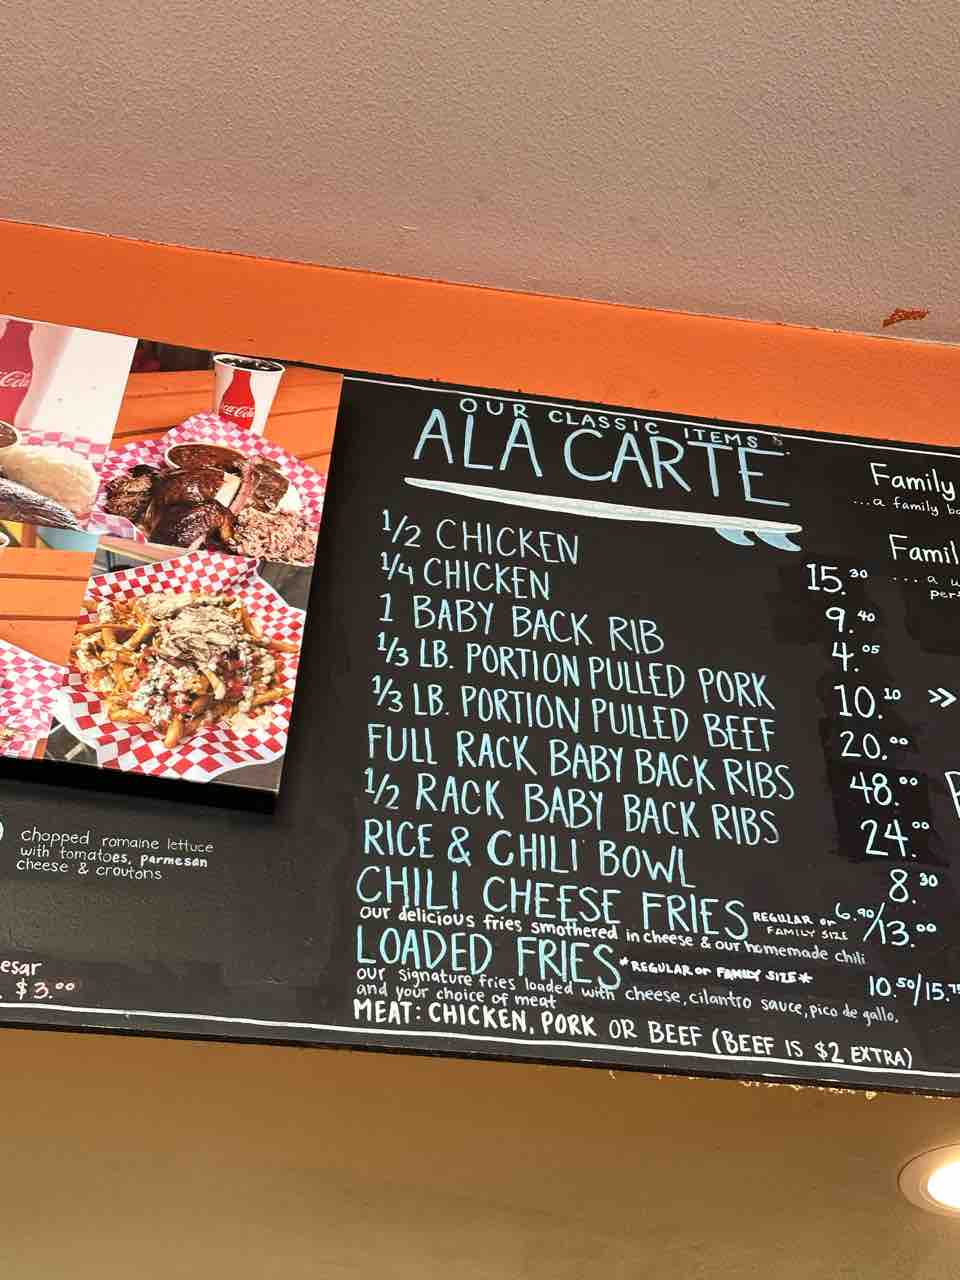 OUR CLASSIC ITEMS
ALA CARTE
1/2 CHICKEN 15.30
1/4 CHICKEN 9.40
1 BABY BACK RIB 4.05
1/3 LB. PORTION PULLED PORK 10.10 >>
1/3 LB. PORTION PULLED BEEF 20.00
FULL RACK BABY BACK RIBS 48.00
1/2 RACK BABY BACK RIBS 24.00
RICE & CHILI BOWL 8.30
CHILI CHEESE FRIES REGULAR or FAMILY SIZE 6.90/13.00
our delicious fries smothered in cheese & our homemade chili
LOADED FRIES *REGULAR or FAMILY SIZE* 10.50/15.75
our signature fries loaded with cheese, cilantro sauce, pico de gallo,
and your choice of meat
MEAT: CHICKEN, PORK OR BEEF (BEEF IS $2 EXTRA)
Family
...a family
Famil
...a
chopped romaine lettuce
with tomatoes, parmesan
cheese & croutons
esar
$3.00
Coca-Cola
Coca-Cola